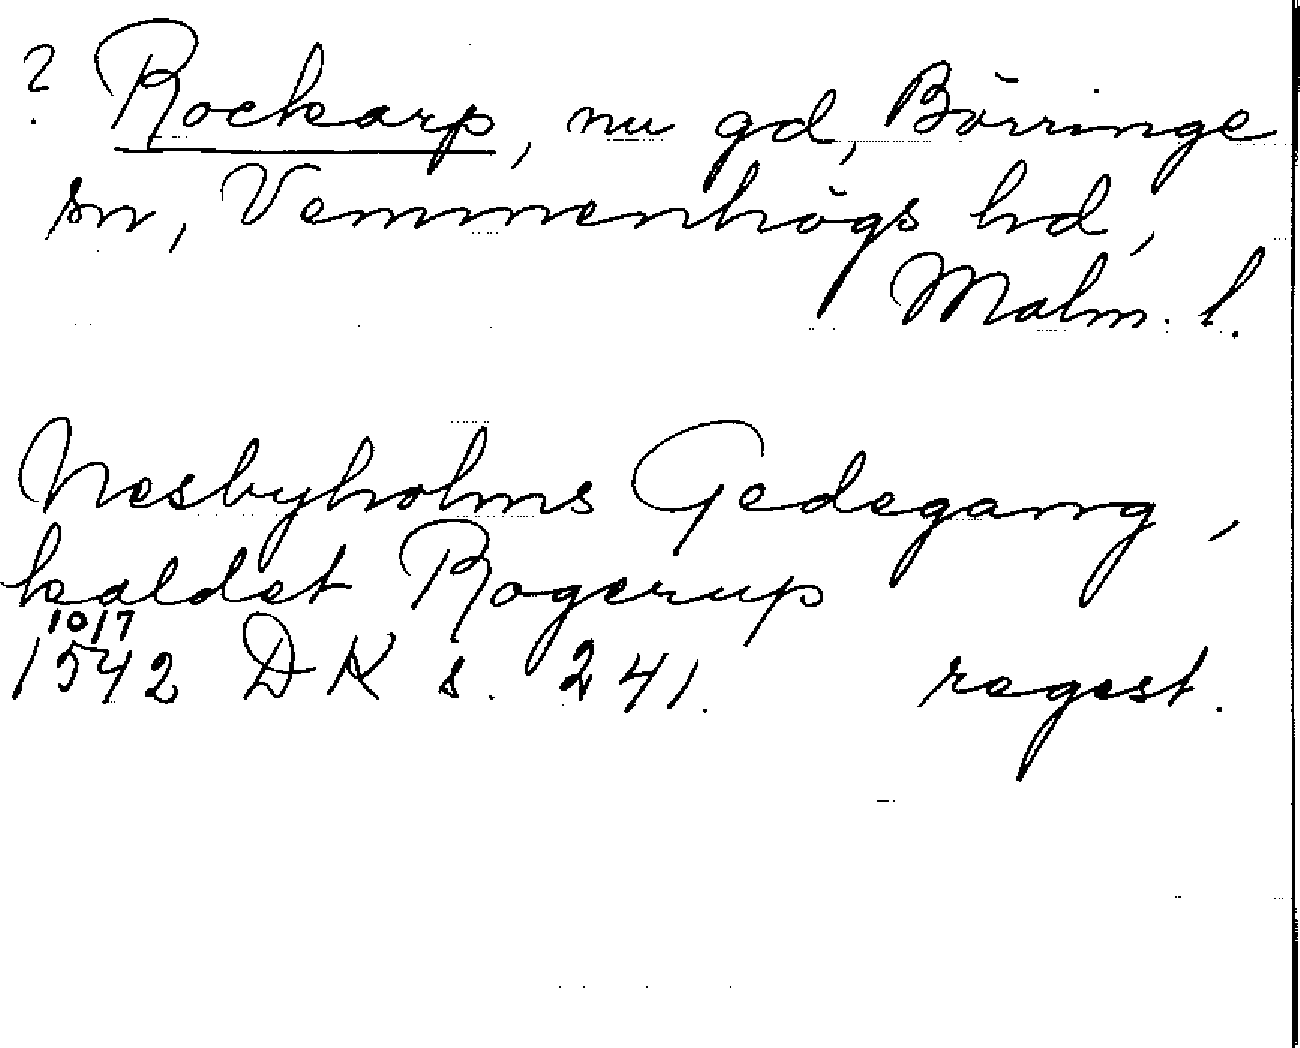 ? Rockarp, nu gd, Börringe
sn, Vemmenhögs hd,
Malm. l.
Nesbyholms Gedegang,
kaldet Rogerup
10/7
1542 DK s. 241. regest.